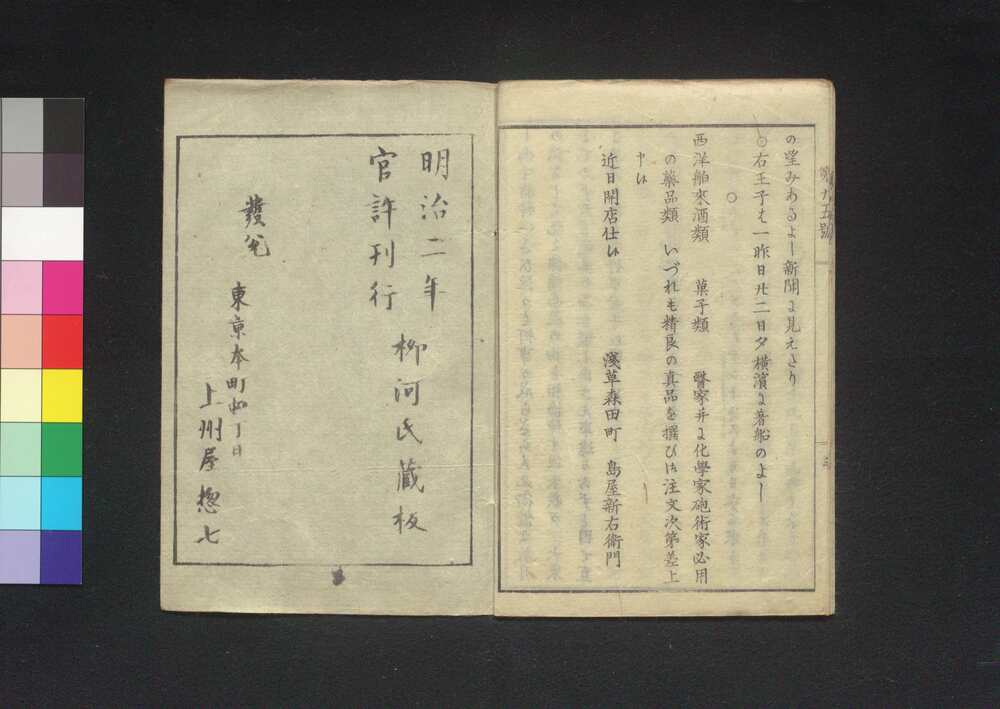 の望みあるよし新聞に見えたり
○右王子は一昨日廿二日夕横濱に著船のよし
○
西洋舶來酒類　菓子類　醫家并に化學家砲術家必用
の藥品類　いづれも精良の真品を撰び候注文次第差上
申候
近日開店仕候　淺草森田町　島屋新右衛門
明治二年
官許刊行　柳河氏藏板
發兌
東京本町四丁目
上州屋惣七